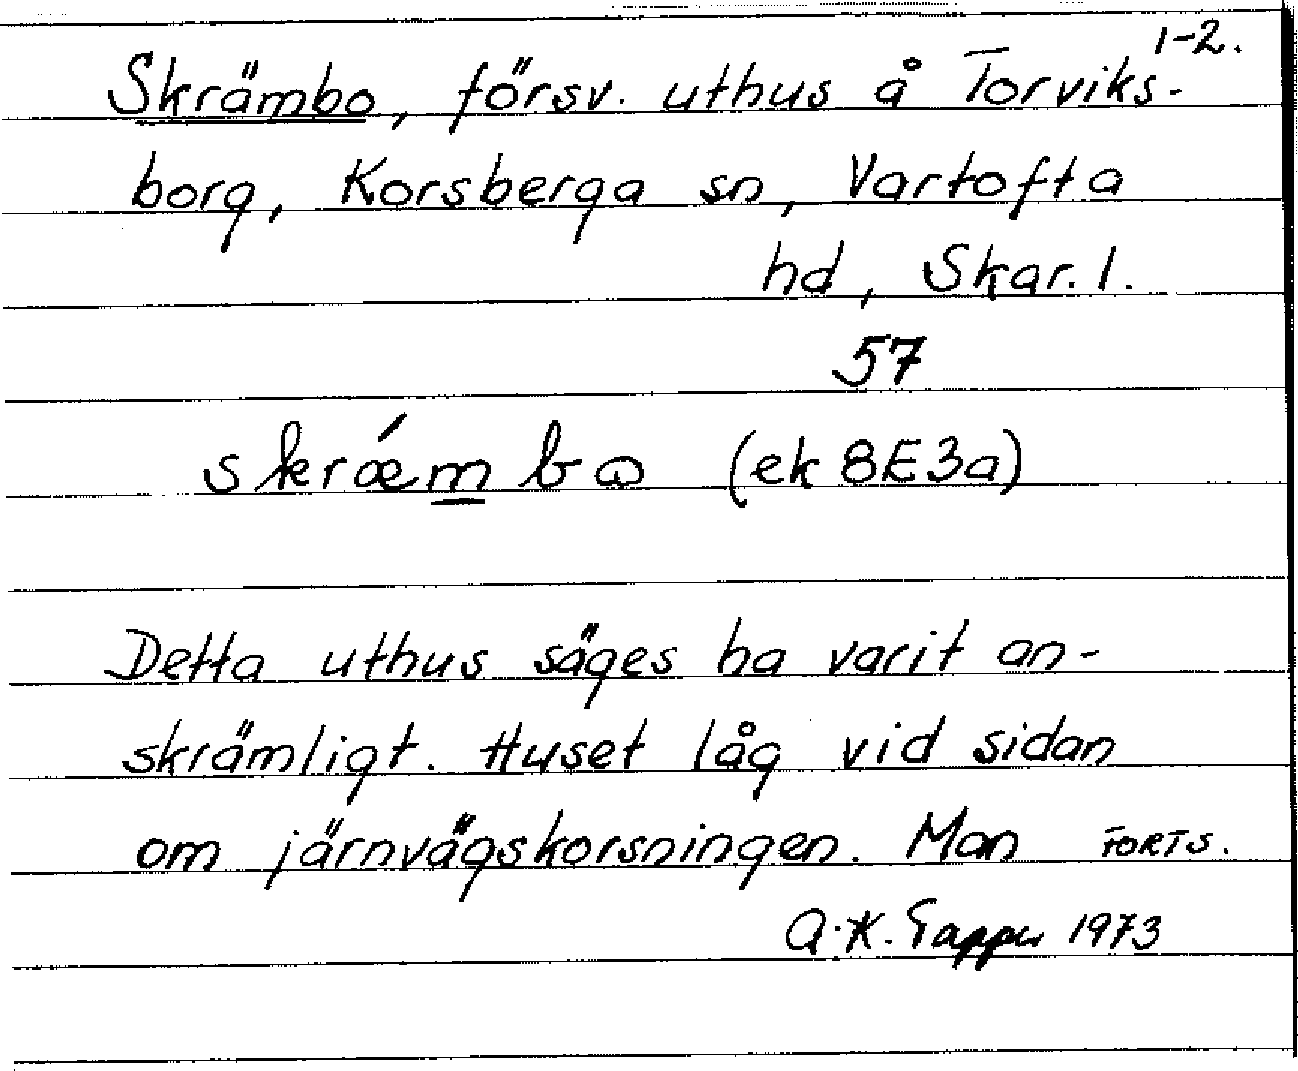 1-2.
Skrämbo, försv. uthus å Torviks-
borg, Korsberga sn, Vartofta
hd, Skar. l.
57
skrǽmbɷ (ek 8E3a)
Detta uthus säges ha varit an-
skrämligt. Huset låg vid sidan
om järnvägskorsningen. Man FORTS.
A.K. Tapper 1973